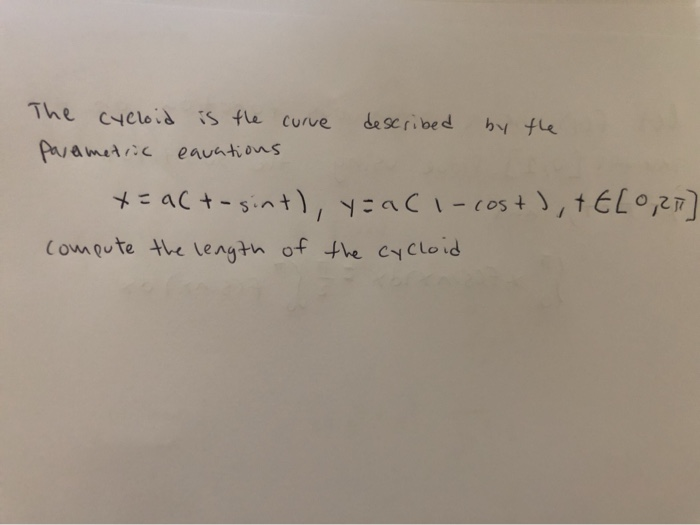 The cycloid is the curve described by the
parametric equations
x = a(t - sin t), y = a(1 - cos t), t ∈ [0, 2π]
compute the length of the cycloid